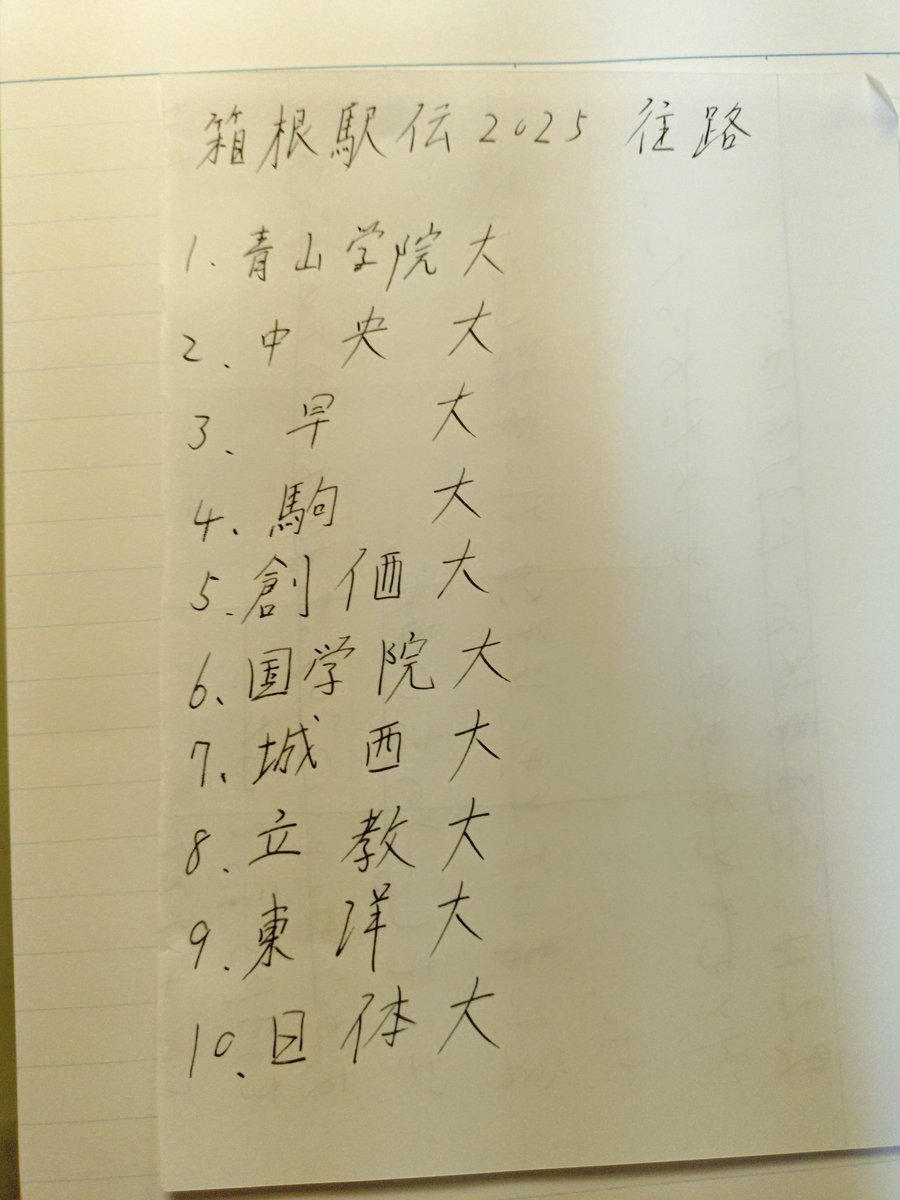 箱根駅伝2025 往路
1.青山学院大
2.中央大
3.早大
4.駒大
5.創価大
6.国学院大
7.城西大
8.立教大
9.東洋大
10.日体大